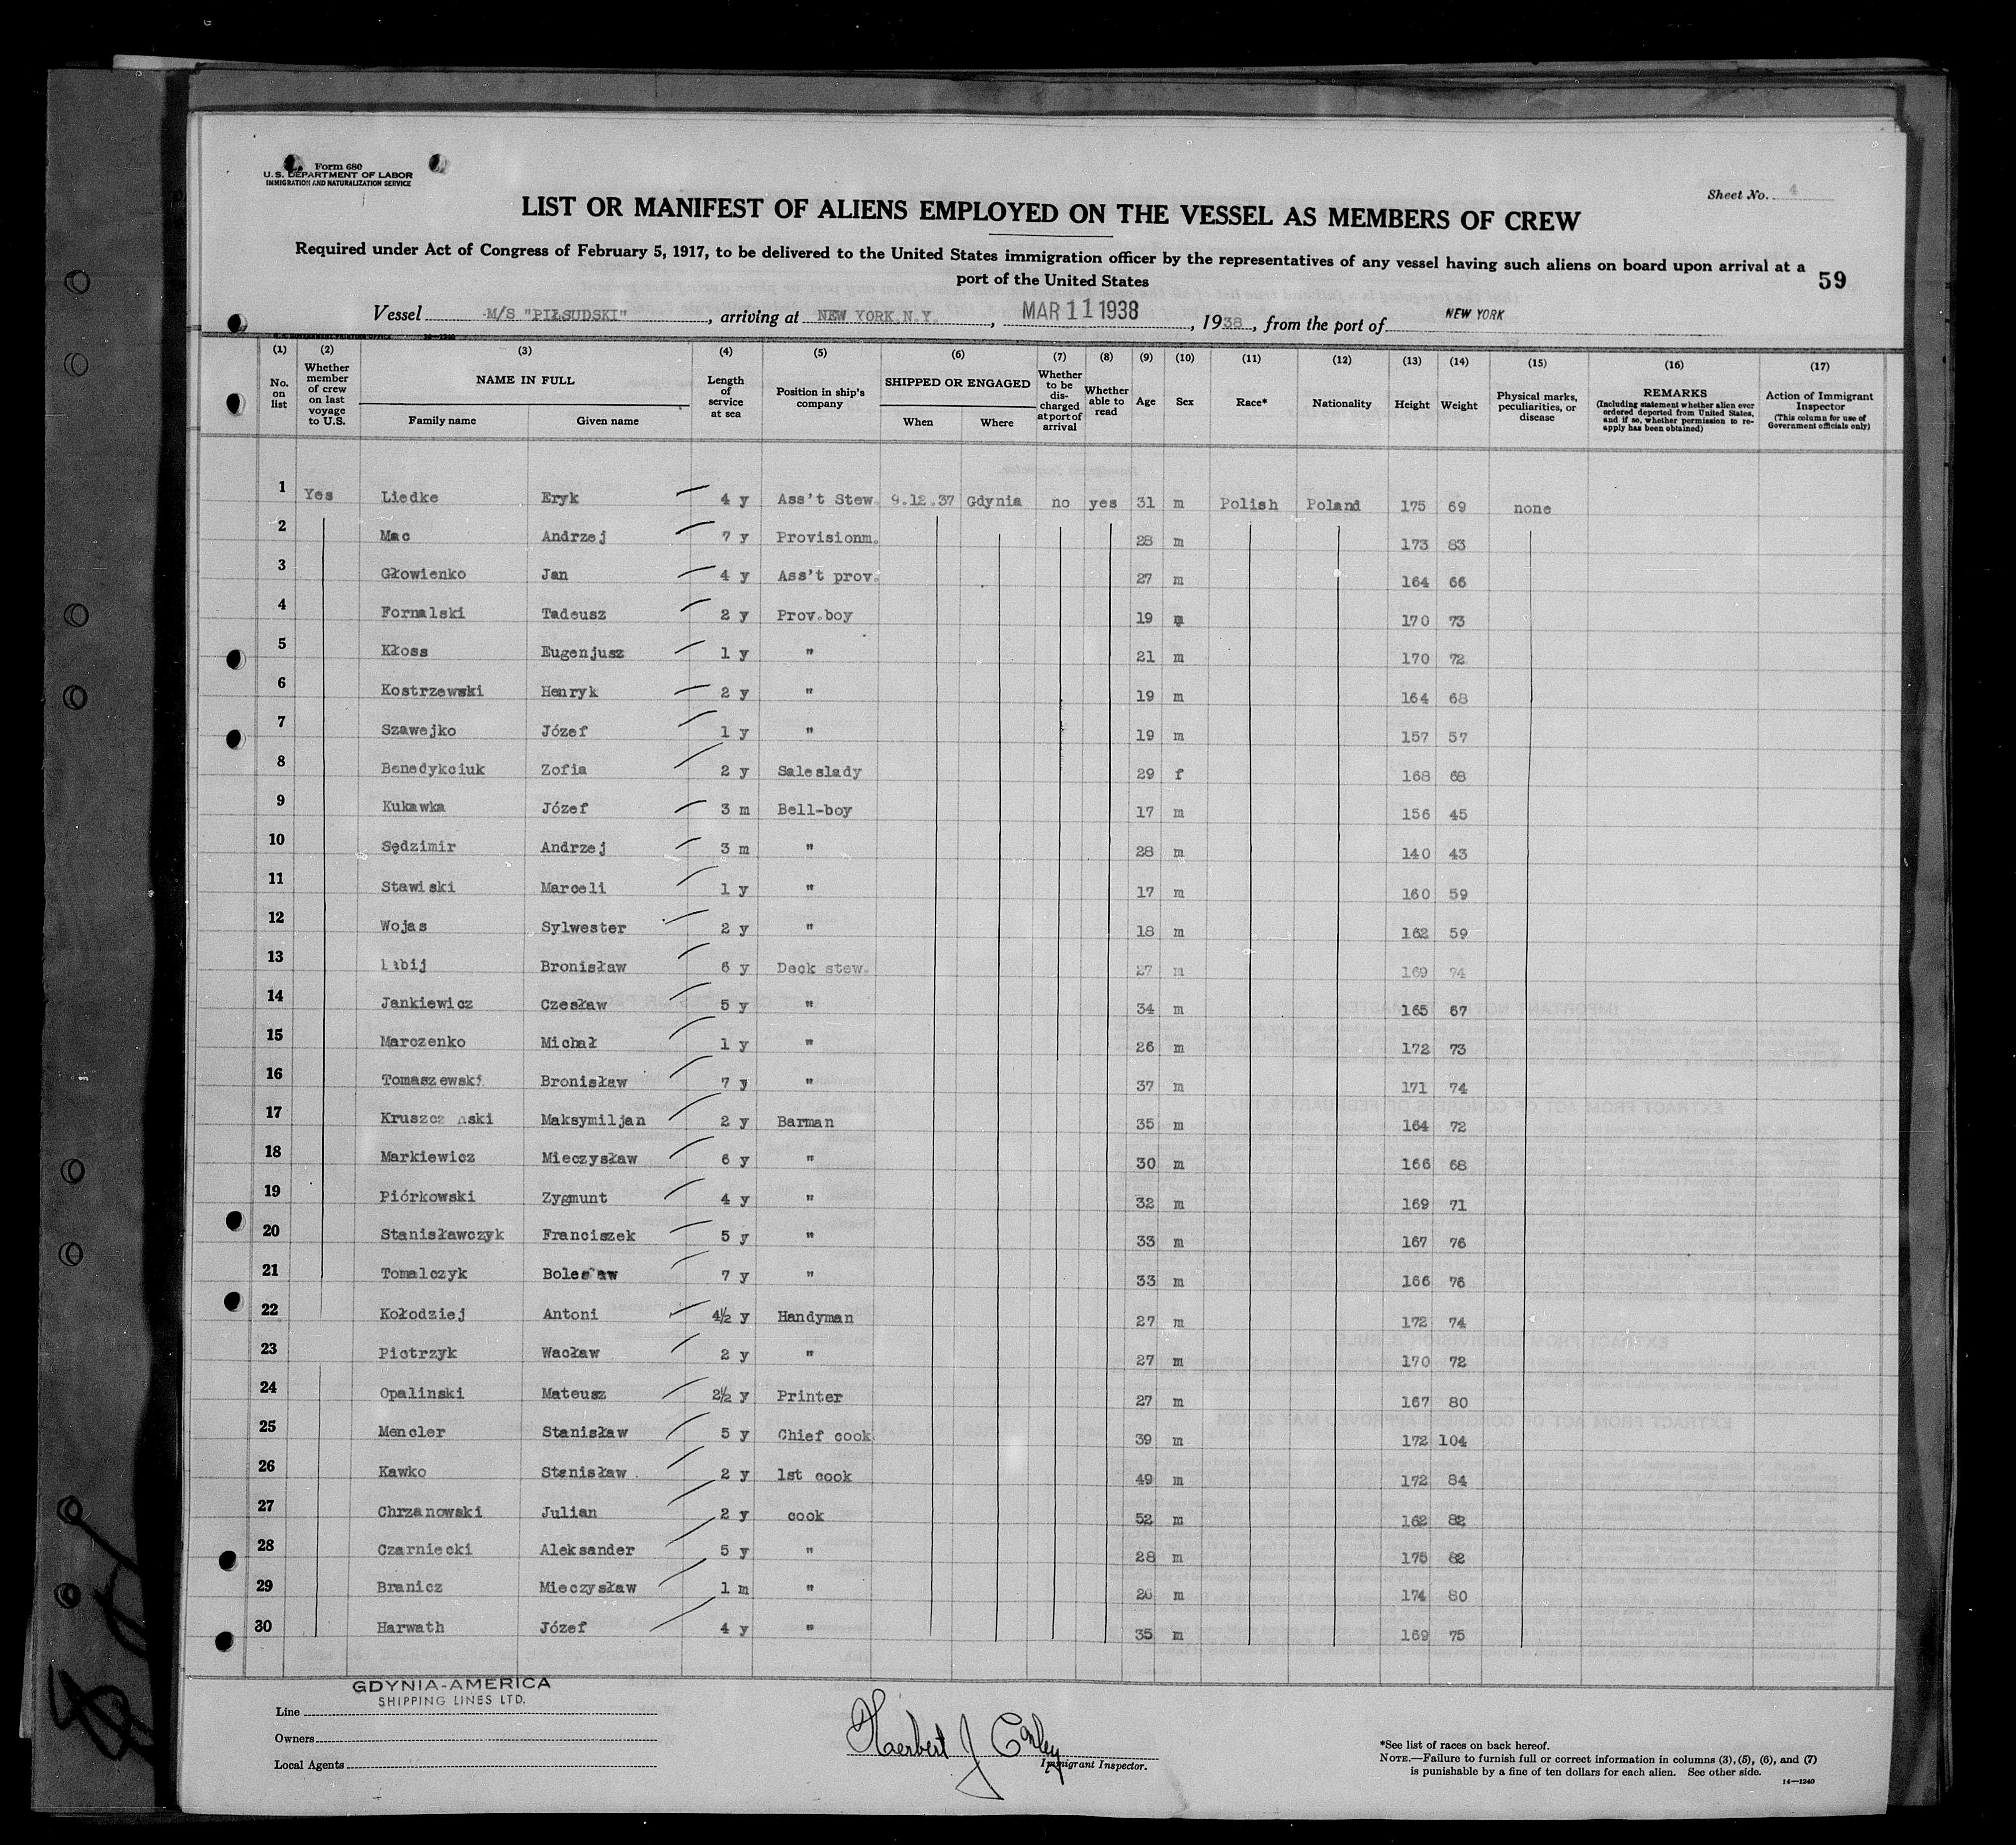 Form 680
U.S. DEPARTMENT OF LABOR
IMMIGRATION AND NATURALIZATION SERVICE
Sheet No. 4
LIST OR MANIFEST OF ALIENS EMPLOYED ON THE VESSEL AS MEMBERS OF CREW
Required under Act of Congress of February 5, 1917, to be delivered to the United States immigration officer by the representatives of any vessel having such aliens on board upon arrival at a
port of the United States
59
Vessel M/S "PIŁSUDSKI", arriving at NEW YORK.N.Y., MAR 11 1938, 1938, from the port of NEW YORK
(1) (2) (3) (4) (5) (6) (7) (8) (9) (10) (11) (12) (13) (14) (15) (16) (17)
No. on list
Whether member of crew on last voyage to U.S.
NAME IN FULL
Family name Given name
Length of service at sea
Position in ship's company
SHIPPED OR ENGAGED
When Where
Whether to be discharged at port of arrival
Whether able to read
Age Sex Race* Nationality Height Weight
Physical marks, peculiarities, or disease
REMARKS
(Including statement whether alien ever ordered deported from United States, and if so, whether permission to reapply has been obtained)
Action of Immigrant Inspector
(This column for use of Government officials only)
1 Yes Liedke Eryk 4 y Ass't Stew. 9.12.37 Gdynia no yes 31 m Polish Poland 175 69 none
2 Mac Andrzej 7 y Provisionm. 28 m 173 83
3 Głowienko Jan 4 y Ass't prov. 27 m 164 66
4 Fornalski Tadeusz 2 y Prov.boy 19 m 170 73
5 Kłoss Eugenjusz 1 y " 21 m 170 72
6 Kostrzewski Henryk 2 y " 19 m 164 68
7 Szawejko Józef 1 y " 19 m 157 57
8 Benedykciuk Zofia 2 y Saleslady 29 f 168 68
9 Kukawka Józef 3 m Bell-boy 17 m 156 45
10 Sędzimir Andrzej 3 m " 28 m 140 43
11 Stawiski Marceli 1 y " 17 m 160 59
12 Wojas Sylwester 2 y " 18 m 162 59
13 Bronisław 6 y Deck stew. 27 m 169 74
14 Jankiewicz Czesław 5 y " 34 m 165 67
15 Marczenko Michał 1 y " 26 m 172 73
16 Tomaszewski Bronisław 7 y " 37 m 171 74
17 Maksymiljan 2 y Barman 35 m 164 72
18 Markiewicz Mieczysław 6 y " 30 m 166 68
19 Piórkowski Zygmunt 4 y " 32 m 169 71
20 Stanisławczyk Franciszek 5 y " 33 m 167 76
21 Tomalczyk Bolesław 7 y " 33 m 166 76
22 Kołodziej Antoni 4½ y Handyman 27 m 172 74
23 Piotrzyk Wacław 2 y " 27 m 170 72
24 Opalinski Mateusz 2½ y Printer 27 m 167 80
25 Mencler Stanisław 5 y Chief cook 39 m 172 104
26 Kawko Stanisław 2 y 1st cook 49 m 172 84
27 Chrzanowski Julian 2 y cook 52 m 162 82
28 Czarniecki Aleksander 5 y " 28 m 175 82
29 Branicz Mieczysław 1 m " 26 m 174 80
30 Harwath Józef 4 y " 35 m 169 75
GDYNIA-AMERICA
SHIPPING LINES LTD.
Line
Owners
Local Agents
Herbert J Conley
Immigrant Inspector.
*See list of races on back hereof.
NOTE.—Failure to furnish full or correct information in columns (3), (5), (6), and (7)
is punishable by a fine of ten dollars for each alien. See other side.
14—1240